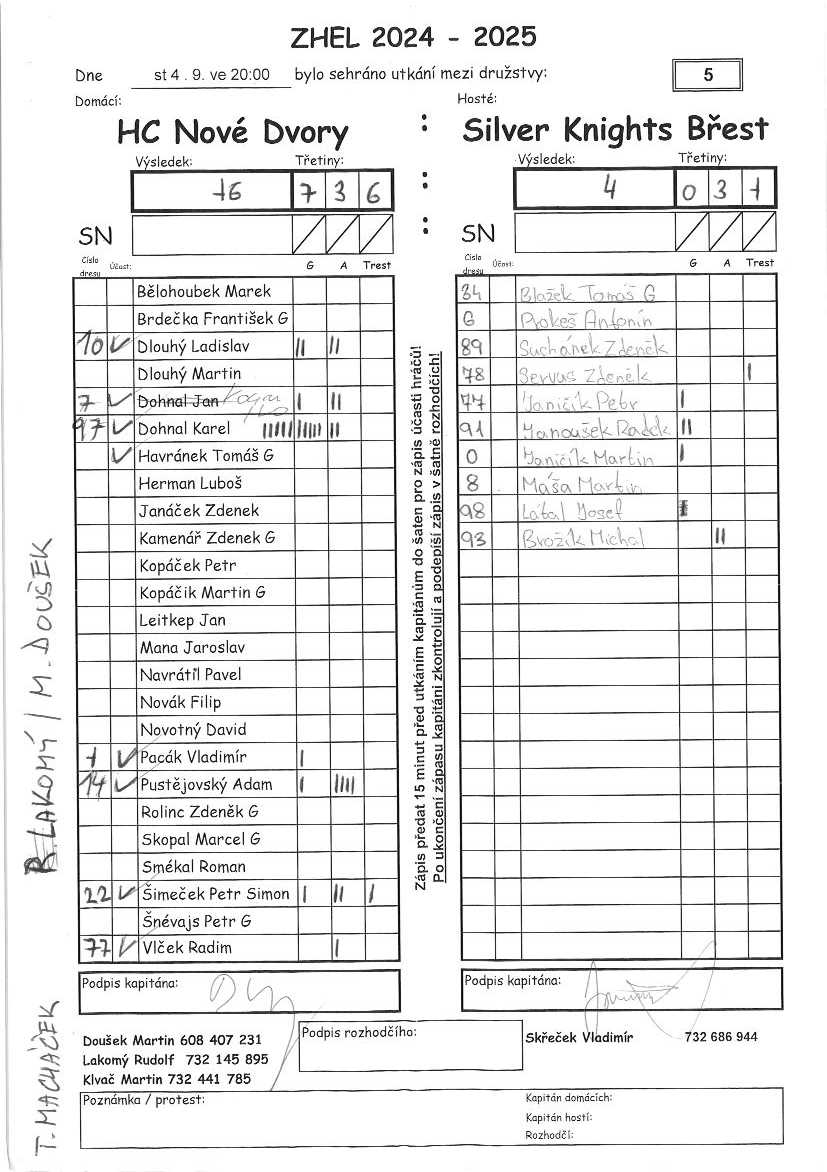 ZHEL 2024 - 2025
Dne st 4 . 9. ve 20:00 bylo sehráno utkání mezi družstvy: 5
Domácí: Hosté:
HC Nové Dvory : Silver Knights Břest
Výsledek: Třetiny: : Výsledek: Třetiny:
16 7 3 6 4 0 3 1
SN : SN
Číslo dresu Účast: G A Trest Číslo dresu Účast: G A Trest
Bělohoubek Marek
Brdečka František G
10 Dlouhý Ladislav II II
Dlouhý Martin
7 Dohnal Jan I II
97 Dohnal Karel II
Havránek Tomáš G
Herman Luboš
Janáček Zdenek
Kamenář Zdenek G
Kopáček Petr
Kopáčik Martin G
Leitkep Jan
Mana Jaroslav
Navrátil Pavel
Novák Filip
Novotný David
1 Pacák Vladimír I
14 Pustějovský Adam I IIII
Rolinc Zdeněk G
Skopal Marcel G
Smékal Roman
22 Šimeček Petr Simon I II I
Šnévajs Petr G
77 Vlček Radim I
84 Blažek Tomáš G
6 Prokeš Antonín
89 Suchánek Zdeněk
78 Servus Zdeněk I
77 Janičík Petr I
91 Janoušek Radek II
0 Janičík Martin I
8 Máša Martin
98 Látal Josef
93 Brožík Michal II
Zápis předat 15 minut před utkáním kapitánům do šaten pro zápis účasti hráčů!
Po ukončení zápasu kapitáni zkontrolují a podepíší zápis v šatně rozhodčích!
R. LAKOMÝ / M. DOUŠEK
T. MACHÁČEK
Podpis kapitána: Podpis kapitána:
Doušek Martin 608 407 231 Podpis rozhodčího: Skřeček Vladimír 732 686 944
Lakomý Rudolf 732 145 895
Klvač Martin 732 441 785
Poznámka / protest: Kapitán domácích:
Kapitán hostí:
Rozhodčí: